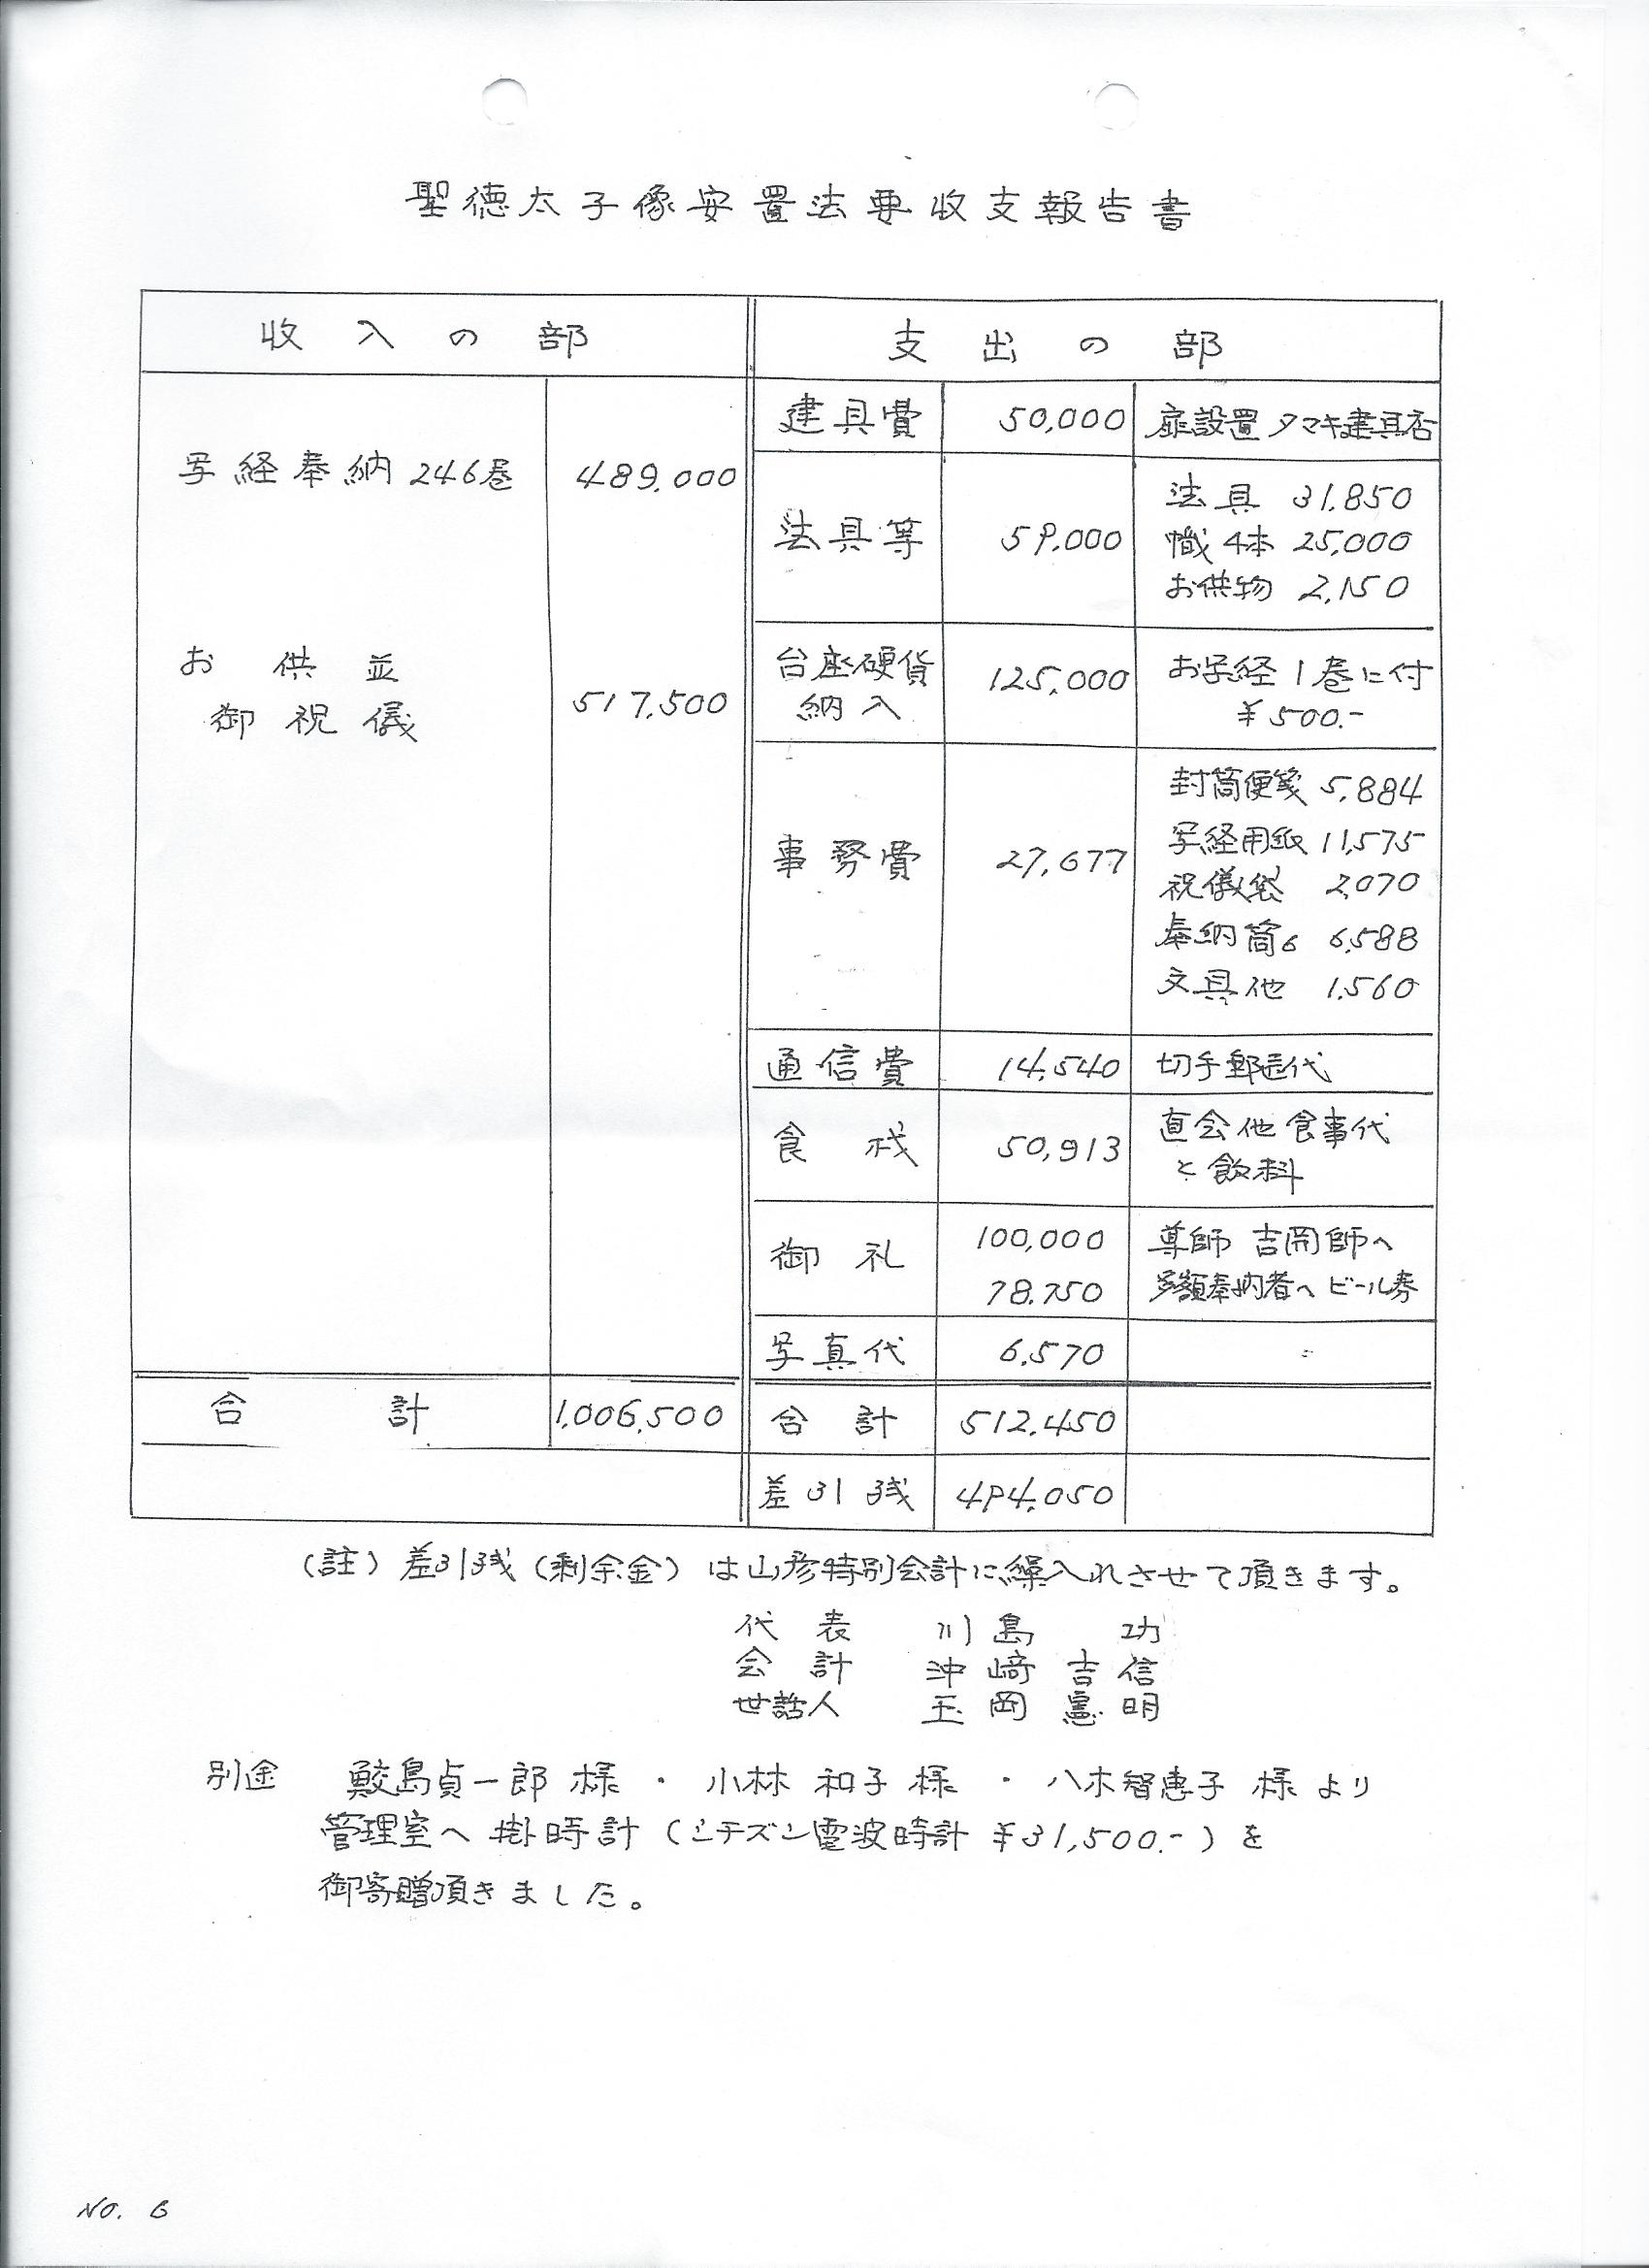 聖徳太子像安置法要収支報告書
収入の部
支出の部
写経奉納246巻 489,000
お供並
御祝儀 517,500
合計 1,006,500
建具費 50,000 扉設置 タマキ建具店
法具等 59,000
法具 31,850
幟4本 25,000
お供物 2,150
台座硬貨
納入 125,000
お写経1巻に付
¥500.-
事務費 27,677
封筒便箋 5,884
写経用紙 11,575
祝儀袋 2,070
奉納筒6 6,588
文具他 1,560
通信費 14,540 切手郵送代
食代 50,913
直会他食事代
と飲料
御礼
100,000 導師 吉岡師へ
78,750 多額奉納者へ ビール券
写真代 6,570
合計 512,450
差引残 494,050
(註) 差引残(剰余金)は山彦特別会計に繰入れさせて頂きます。
代表 川島 功
会計 沖﨑吉信
世話人 玉岡憲明
別途 鮫島貞一郎様・小林和子様・八木智恵子様より
管理室へ掛時計(シチズン電波時計 ¥31,500.-)を
御寄贈頂きました。
NO. 6